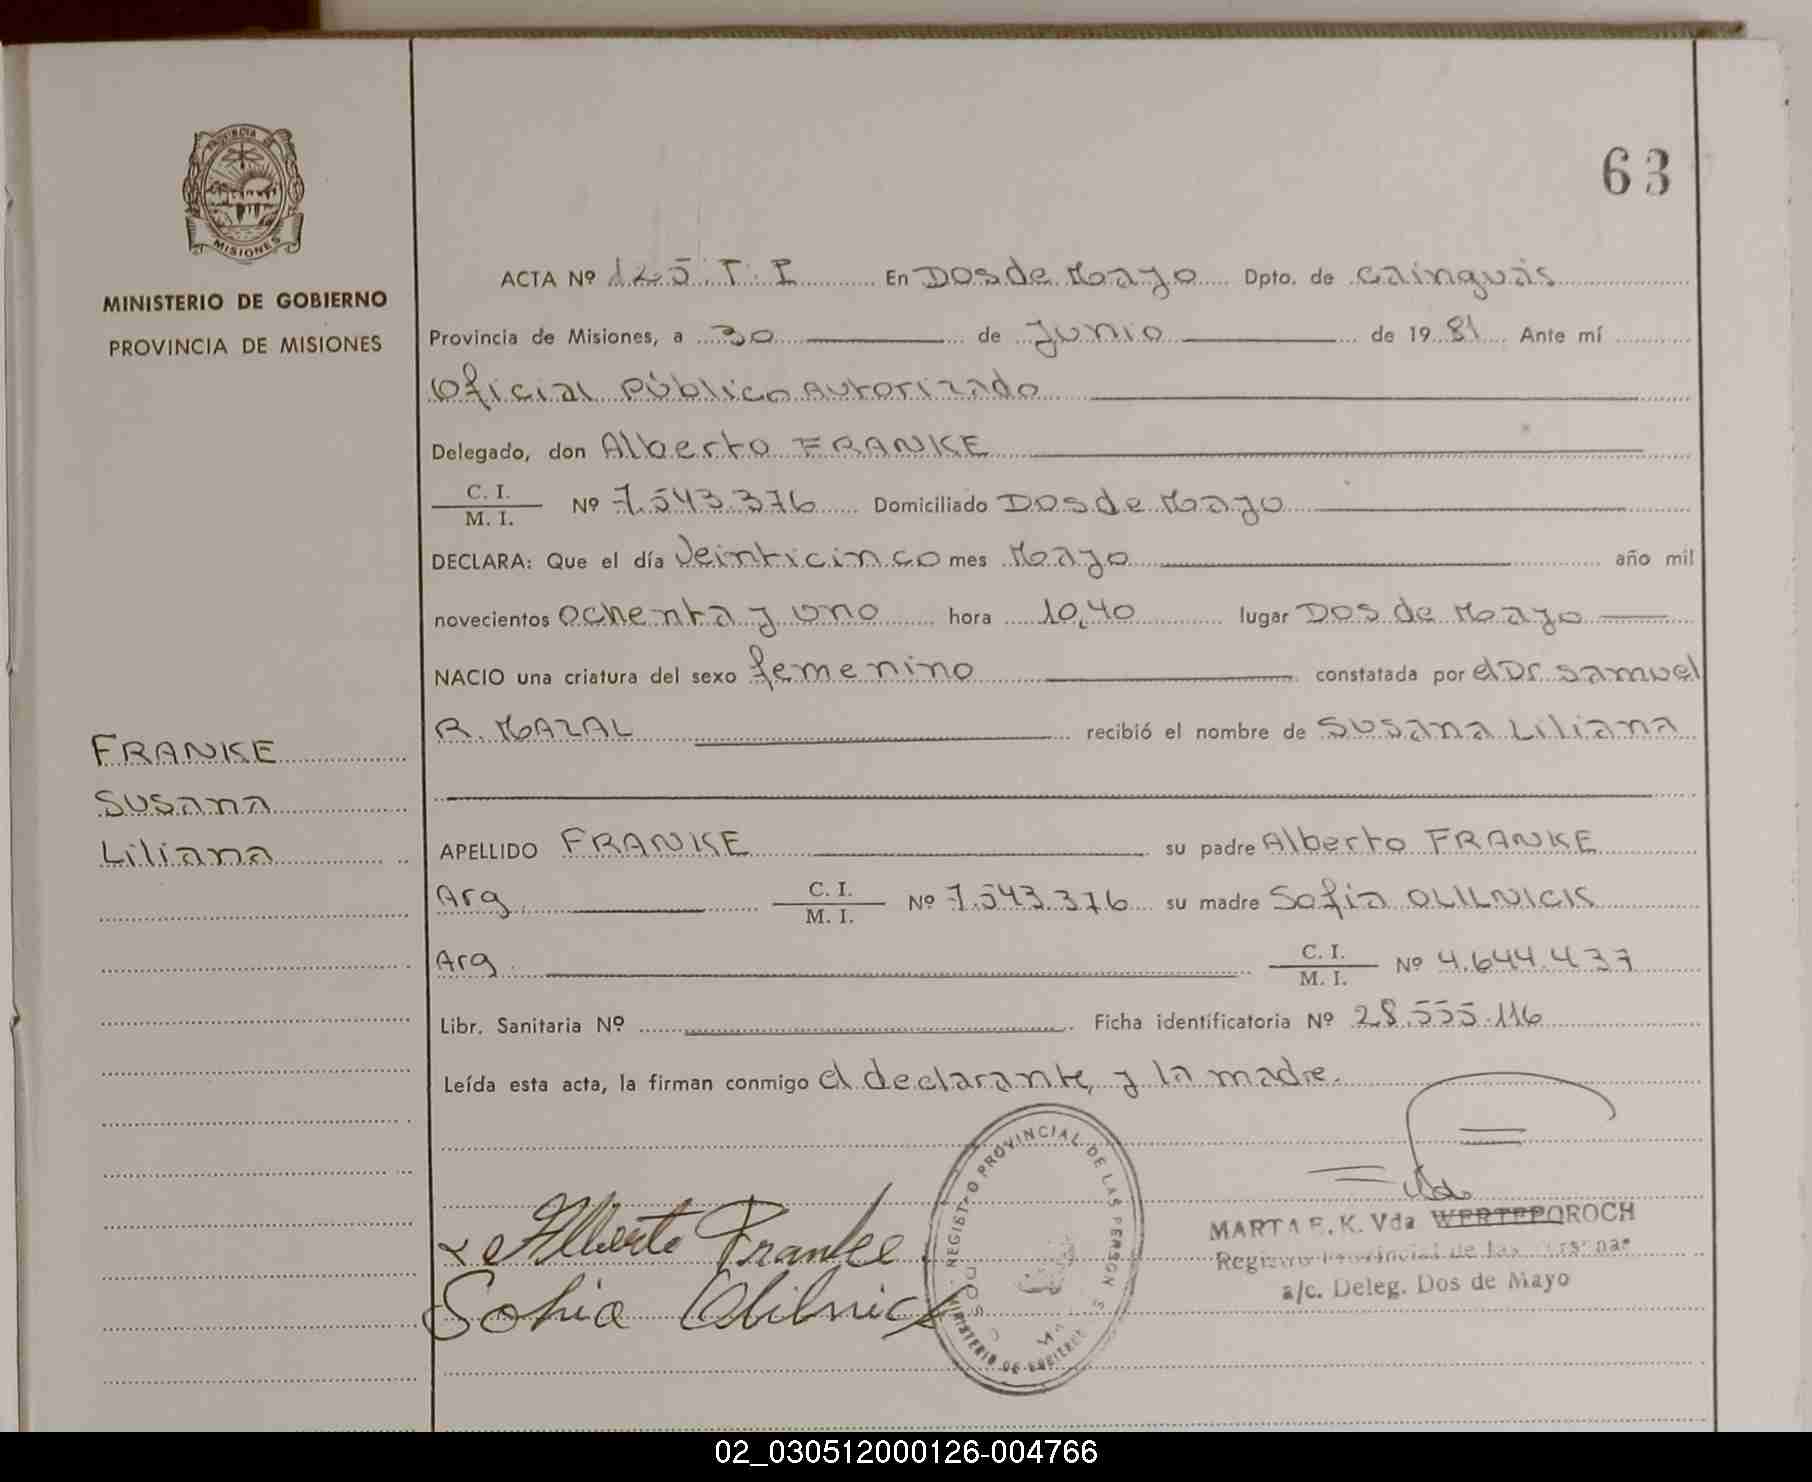 PROVINCIA DE
MISIONES
MINISTERIO DE GOBIERNO
PROVINCIA DE MISIONES
FRANKE
Susana
Liliana
63
ACTA Nº 125. T. I En Dos de Mayo Dpto. de Cainguás
Provincia de Misiones, a 30 de Junio de 1981 Ante mí
Oficial Público Autorizado
Delegado, don Alberto FRANKE
C. I.
M. I. Nº 7.543.376 Domiciliado Dos de Mayo
DECLARA: Que el día Veinticinco mes Mayo año mil
novecientos ochenta y uno hora 10,40 lugar Dos de Mayo
NACIO una criatura del sexo femenino constatada por el Dr. Samuel
R. MAZAL recibió el nombre de Susana Liliana
APELLIDO FRANKE su padre Alberto FRANKE
Arg. C. I.
M. I. Nº 7.543.376 su madre Sofia OLILNICK
Arg. C. I.
M. I. Nº 4.644.437
Libr. Sanitaria Nº Ficha identificatoria Nº 28.555.116
Leída esta acta, la firman conmigo el declarante, y la madre.
Alberto Franke
Sofia Olilnick
REGISTRO PROVINCIAL DE LAS PERSONAS
MINISTERIO DE GOBIERNO
MARTA E. K. Vda WERTEPOROCH
Registro Provincial de las Personas
a/c. Deleg. Dos de Mayo
02_030512000126-004766